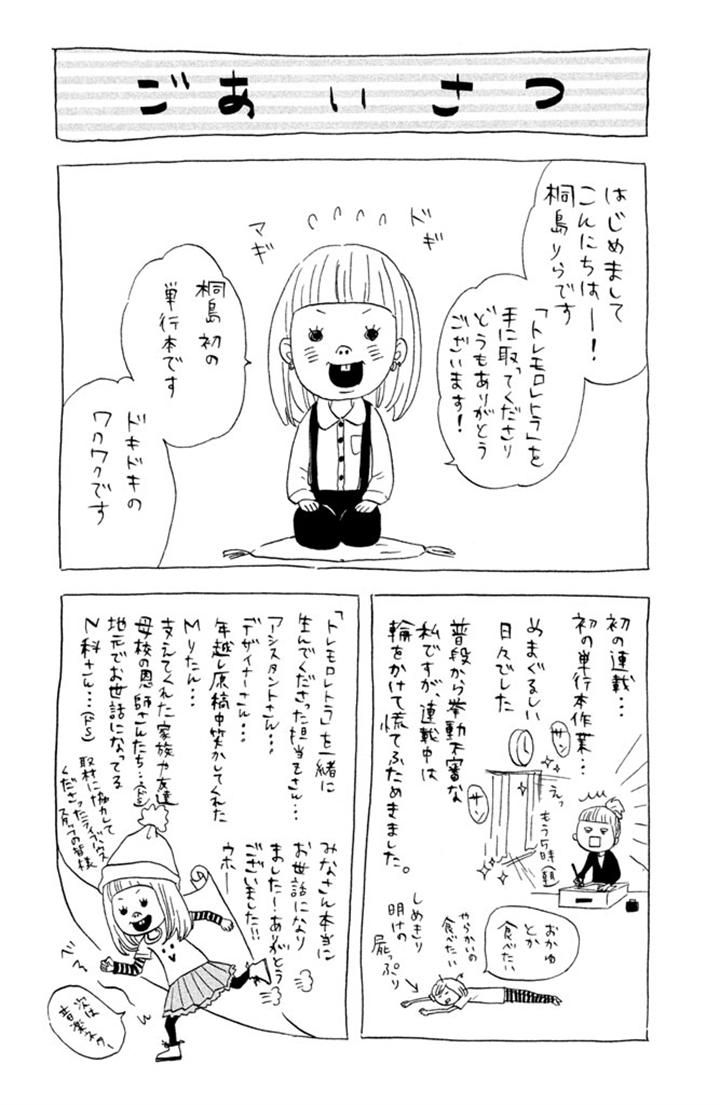 ごあいさつ
はじめまして
こんにちはー!
桐島りらです
「トレモロレトラ」を
手に取ってくださり
どうもありがとう
ございます!
ドギ
マギ
桐島初の
単行本です
ドキドキの
ワクワクです
初の連載…
初の単行本作業…
めまぐるしい
日々でした
普段から挙動不審な
私ですが、連載中は
輪をかけて慌てふためきました。
サン
サン
えっ
もう5時(朝)
おかゆ
とか
食べたい
やらかいの
食べたい
しめきり
明けの
屍っぷり
「トレモロレトラ」を一緒に
生んでくださった担当Zさん…
アシスタントさん…
デザイナーさん…
年越し原稿中笑かしてくれた
Mりたん…
支えてくれた家族や友達
母校の恩師さんたち…
地元でお世話になってる
N科さん…(Dr.)
取材に協力して
くださったライブハウス
スタッフの皆様
みなさん本当に
お世話になり
ました!ありがとう
ございました!!
ウホー
次は